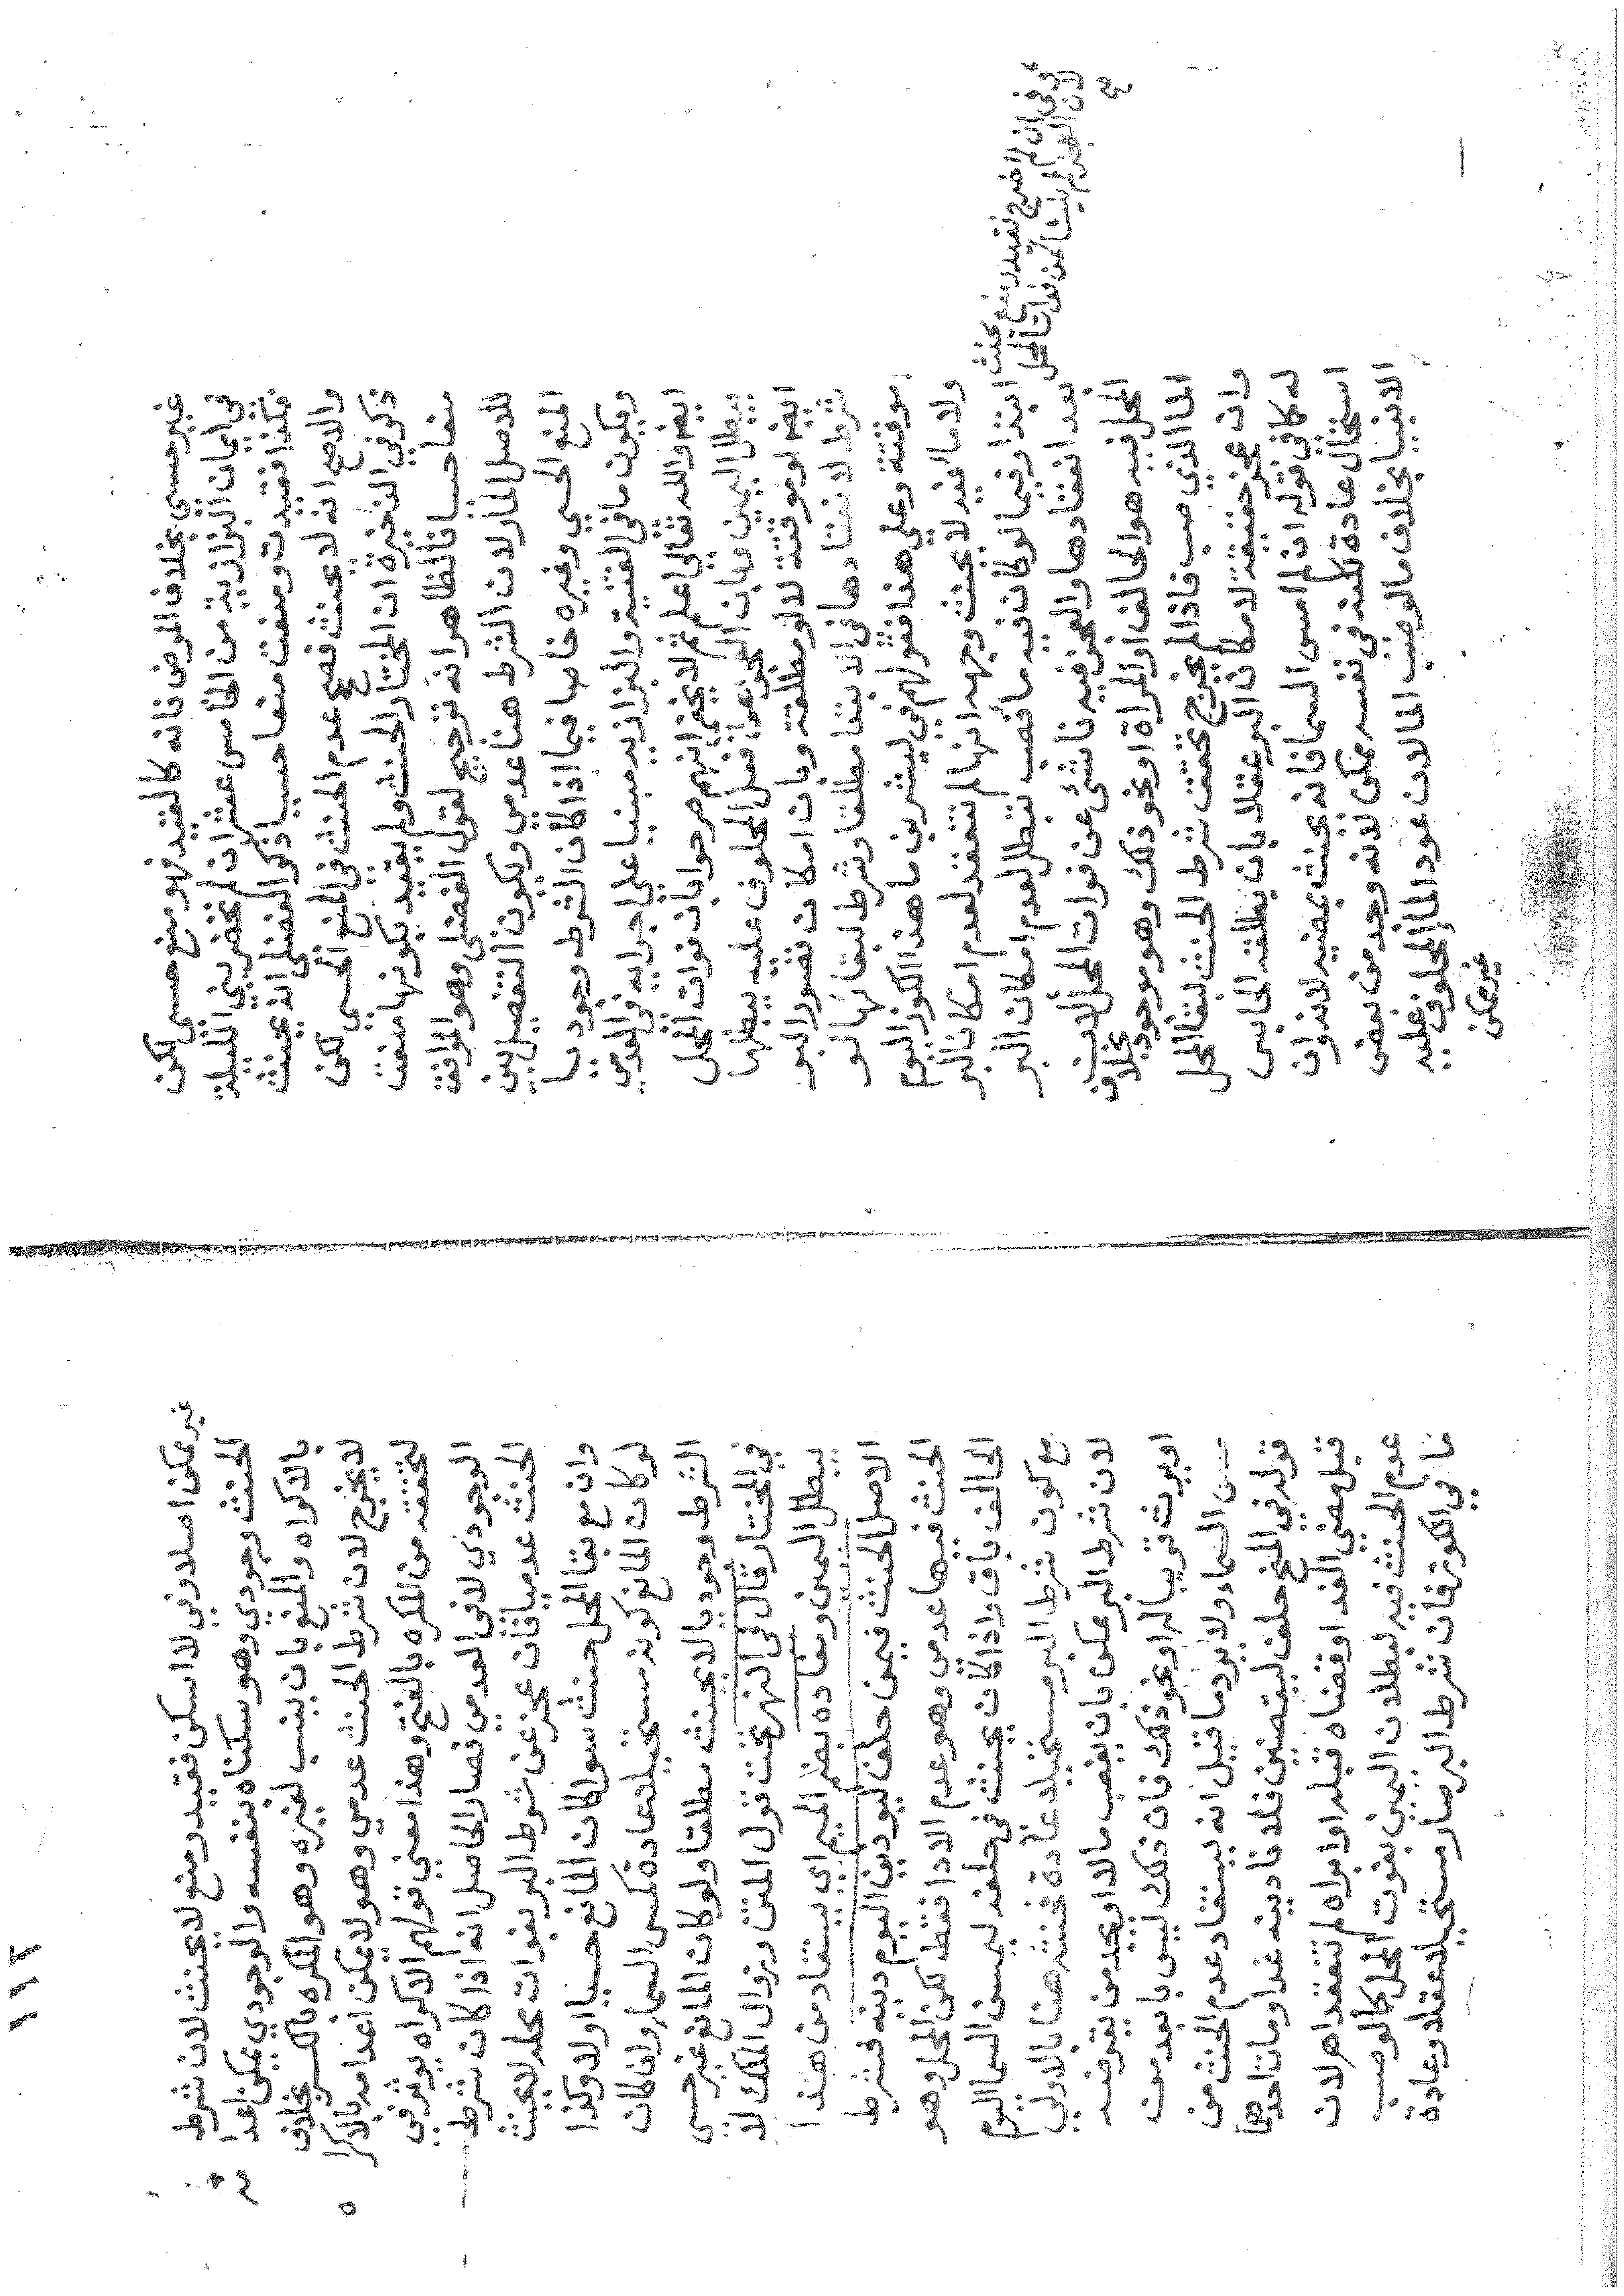 غير حسي بخلاف المرض فانه كالقيد فهو منع حسي لكن
في ايمان البزازية من الخامس عشر ان لم تحضريني الليلة
فكذا فقيدت ومنعت منعا حسيا ذكر الفضلي انه يحنث
والاصح انه لا يحنث فصحح عدم الحنث في المنع الحسي لكن
ذكر في الذخيرة ان المختار الحنث ولم يقيد بكونها منعت
منعا حسا فالظاهر انه ترجيح لقول الفضلي وهو الموافق
للاصل المار لان الشرط هنا عدمي ويكون التفصيل بين
المنع الحسي وغيره خاصا فيما اذا كان الشرط وجوديا
ويكون ما في القنية والبزازيه مبنيا على اجرايه في العدمي
ايضا والله تعالى اعلم ثم لا يخفى انهم صرحوا بان فوات المحل
يبطل اليمين وبان العجز عن فعل المحلوف عليه يبطلها
ايضا لو موقتة لا لو مطلقة وبان امكان تصور البر
شرط لانعقادها في الابتدا مطلقا وشرط لبقائها لو
موقتة وعلى هذا فقولهم في ليشربن ما هذا الكوز اليوم
ولا ماء فيه لا يحنث وجهه انها لم تنعقد لعدم امكان البر
ابتدا وفيما لو كان فيه ماء فصب تبطل لعدم امكان البر
بعد انعقادها والعجز فيه ناشئ عن فوات المحل لان
المحل فيه هو الحالف او المراة او نحو ذلك وهو موجود بخلاف
الما الذي صب فاذا لم يخرج تحقق شرط الحنث لبقا المحل
وان عجز حقيقة لامكان البر عقلا بان يطلقه الحابس
له كما في قوله ان لم امس السما فانه يحنث بمضيه لانه وان
استحال عادة لكنه في نفسه ممكن لانه وجد من بعض
الانبيا بخلاف مالو صب الما لان عود الما المحلوف عليه
غير ممكن
وفي ان لم اخرج فقيد ومنع يحنث
لان العجز لم ينشا عن فوات المحل
صح
١١٢
غير ممكن اصلا وفي لا اسكن فقيد ومنع لا يحنث لان شرط
الحنث وجودي وهو سكناه بنفسه والوجودي يمكن اعدا
بالاكراه والمنع بان ينسب لغيره وهو المكره بالكسر بخلاف
لا يخرج لان شرط الحنث عدمي وهو لا يمكن اعدامه بالاكرا
لتحققه من المكره بالفتح وهذا معنى قولهم الاكراه يوثر في
الوجودي لا في العدمي فصار الحاصل انه اذا كان شرط
الحنث عدميا فان عجز عن شرط البر بفوات محله لا يحنث
وان مع بقا المحل حنث سوا كان المانع حسيا اولا وكذا
لو كان المانع كونه مستحيلا عادة كمس السما وان كان
الشرط وجوديا لا يحنث مطلقا ولو كان المانع غير حسي
في المختار قال في النهر تحت قول المتن وزوال الملك لا
يبطل اليمين ومفاده بضم الميم اي يستفاد من هذا
الاصل الحنث فيمن حلف ليودين اليوم دينه فشرط
الحنث فيها عدمي وهو عدم الادا فقط لكن المحل وهو
الحالف باق واذا كان يحنث في حلفه ليمسن السما اليوم
مع كون شرط البر مستحيلا عادة فحنثه هنا بالاولى
لان شرط البر ممكن بان يغصب مالا او يجد من يقرضه
او يرث قريبا له او نحو ذلك فان ذلك ليس بابعد من
مس السماء ولا يرد ما قيل انه يستفاد عدم الحنث من
قوله في المنح حلف ليقضين فلانا دينه غدا ومات احدهما
قبل مضي الغد او قضاه قبله او ابراه لم تنعقد اهـ لان
عدم الحنث فيه لبطلان اليمين بفوت المحل كما لو صب
ما في الكوز فان شرط البر صار مستحيلا عقلا وعادة